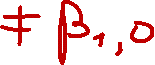 ≠ β₁,0